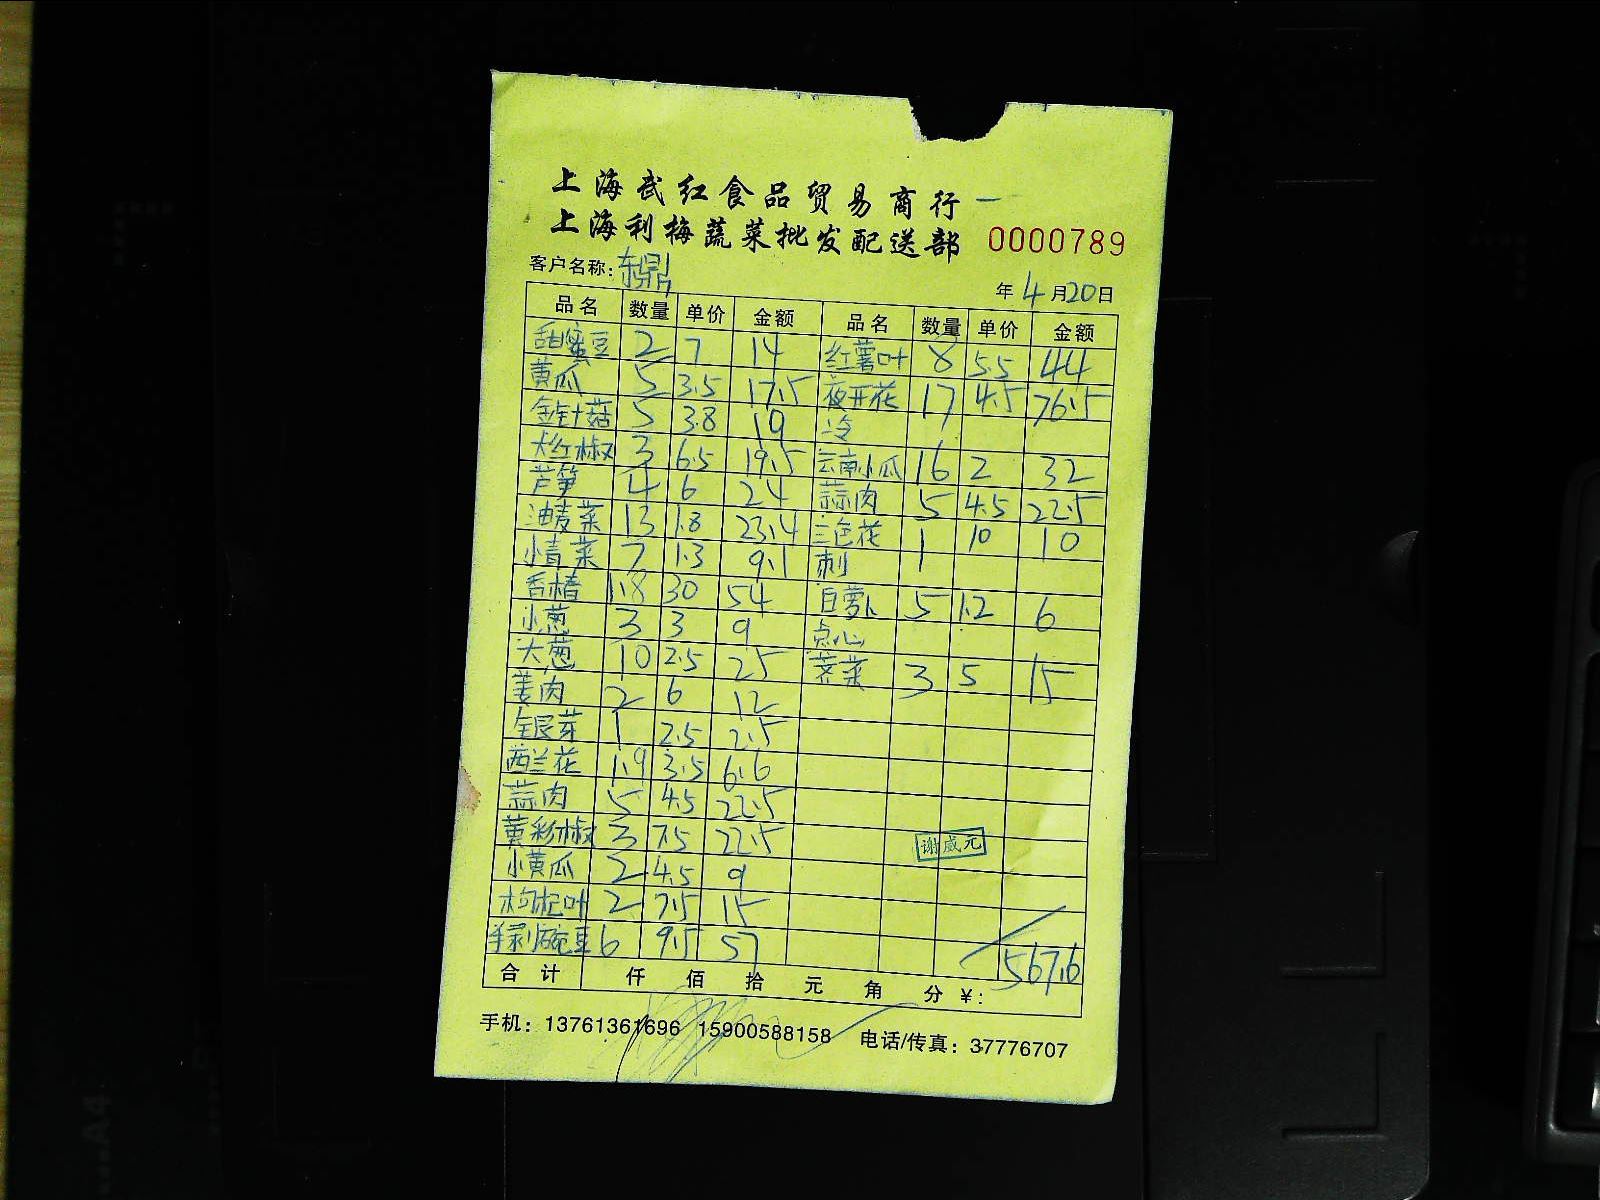 上海武红食品贸易商行
上海利梅蔬菜批发配送部 0000789
客户名称: 东鼎 年 4 月 20 日
品名 数量 单价 金额 品名 数量 单价 金额
甜蜜豆 2 7 14 红薯叶 8 5.5 44
黄瓜 5 3.5 17.5 夜开花 17 4.5 76.5
金针菇 5 3.8 19 冷
大红椒 3 6.5 19.5 云南小瓜 16 2 32
芦笋 4 6 24 蒜肉 5 4.5 22.5
油麦菜 13 1.8 23.4 三色花 1 10 10
小青菜 7 1.3 9.1 刺 1
香椿 1.8 30 54 白萝卜 5 1.2 6
小葱 3 3 9 点心
大葱 10 2.5 25 荠菜 3 5 15
姜肉 2 6 12
银芽 1 2.5 2.5
西兰花 1.9 3.5 6.6
蒜肉 5 4.5 22.5
黄彩椒 3 7.5 22.5
谢咸元
小黄瓜 2 4.5 9
枸杞叶 2 7.5 15
手剥碗豆 6 9.5 57 567.6
合计 仟 佰 拾 元 角 分 ¥:
手机: 13761361696 15900588158 电话/传真: 37776707
A4